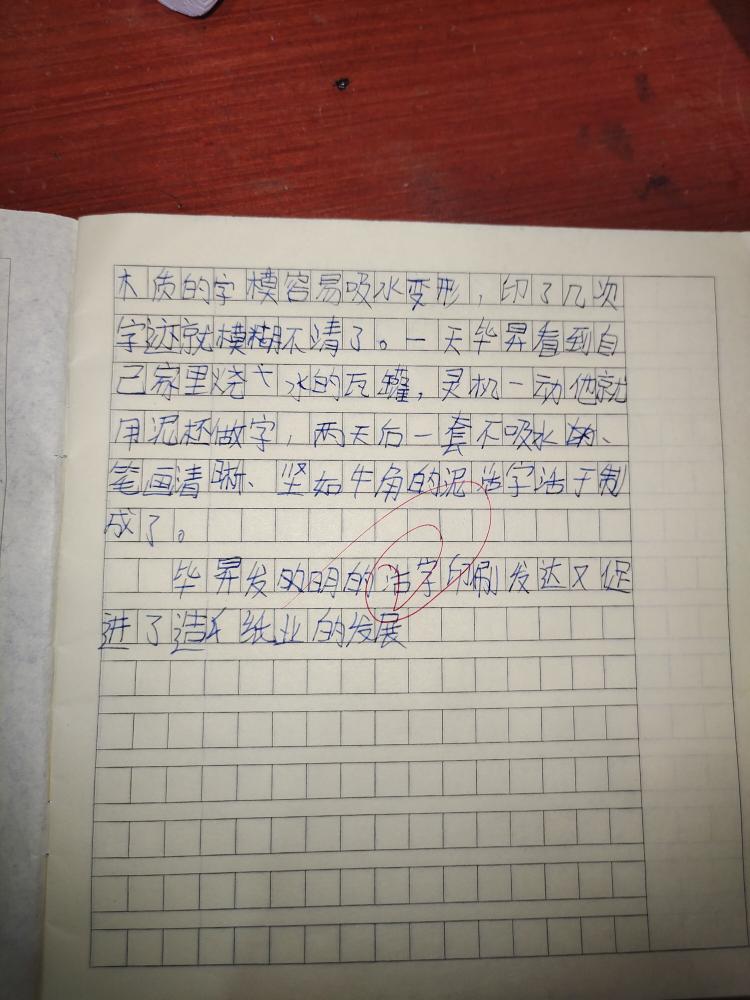 木质的字模容易吸水变形，印了几次
字迹就模糊不清了。一天毕昇看到自
己家里烧水的瓦罐，灵机一动他就
用泥杯做字，两天后一套不吸水的、
笔画清晰、坚如牛角的泥活字活于制
成了。
毕昇发明的活字印刷发达又促
进了造纸业的发展